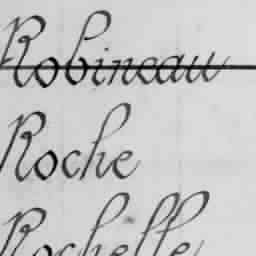 Robineau
Roche
Rochelle